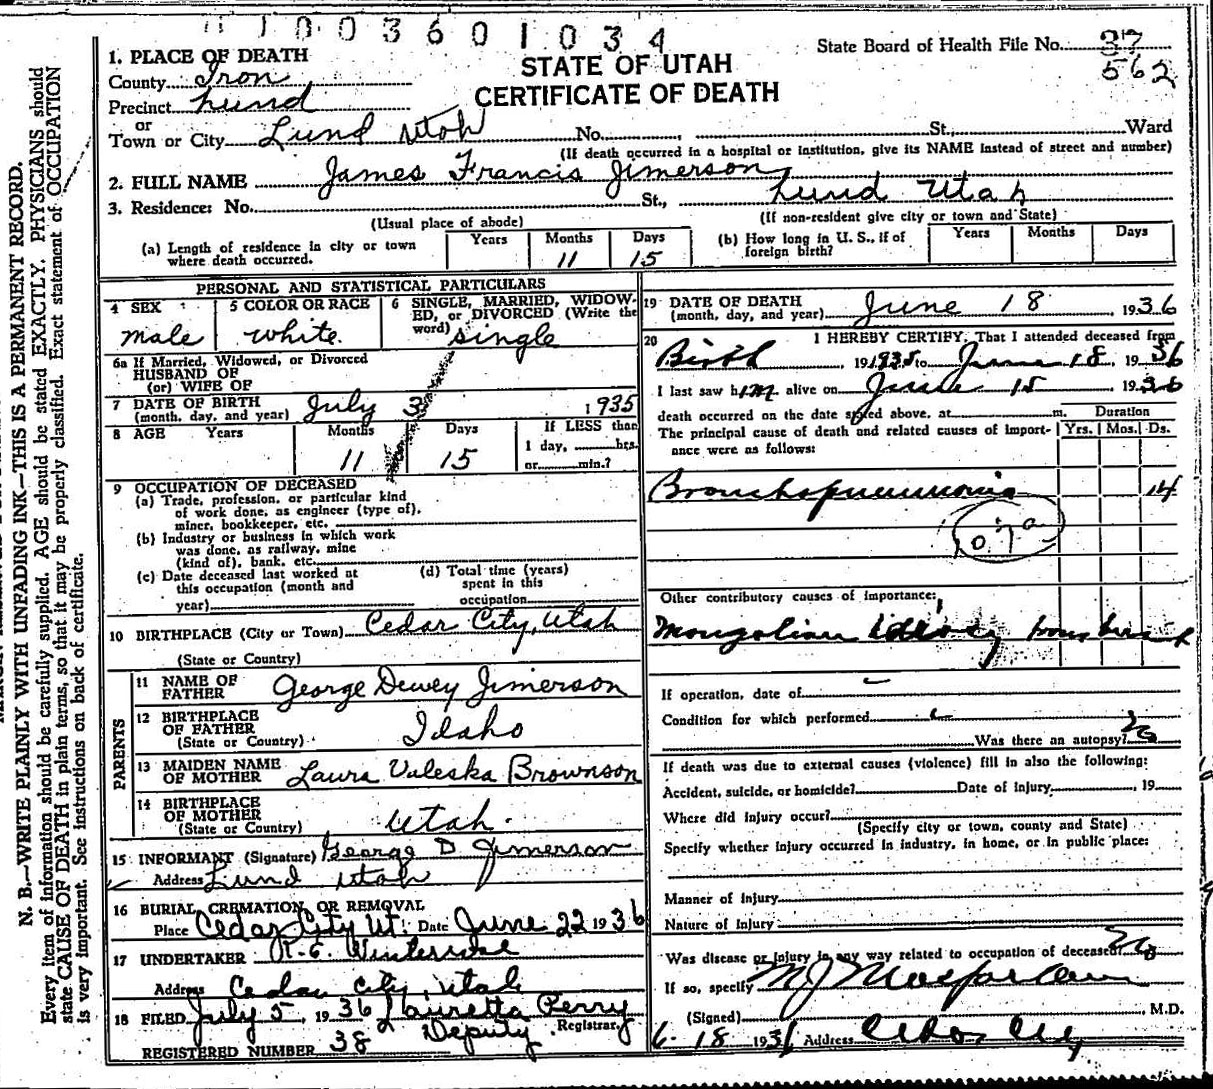 11003601034
State Board of Health File No. 37
562
STATE OF UTAH
CERTIFICATE OF DEATH
1. PLACE OF DEATH
County Iron
Precinct Lund
or
Town or City Lund Utah No. , St., Ward
(If death occurred in a hospital or institution, give its NAME instead of street and number)
2. FULL NAME James Francis Jimerson
3. Residence: No. St., Lund Utah
(Usual place of abode) (If non-resident give city or town and State)
(a) Length of residence in city or town where death occurred. Years Months 11 Days 15
(b) How long in U. S., if of foreign birth? Years Months Days
PERSONAL AND STATISTICAL PARTICULARS
4 SEX male
5 COLOR OR RACE white.
6 SINGLE, MARRIED, WIDOWED, or DIVORCED (Write the word) single
6a If Married, Widowed, or Divorced
HUSBAND OF
(or) WIFE OF
7 DATE OF BIRTH
(month, day, and year) July 3 1935
8 AGE Years Months 11 Days 15 If LESS than
1 day, hrs.
or min.?
9 OCCUPATION OF DECEASED
(a) Trade, profession, or particular kind
of work done, as engineer (type of),
miner, bookkeeper, etc.
(b) Industry or business in which work
was done, as railway, mine
(kind of), bank, etc.
(c) Date deceased last worked at
this occupation (month and
year)
(d) Total time (years)
spent in this
occupation
10 BIRTHPLACE (City or Town) Cedar City, Utah
(State or Country)
PARENTS
11 NAME OF
FATHER George Dewey Jimerson
12 BIRTHPLACE
OF FATHER Idaho
(State or Country)
13 MAIDEN NAME
OF MOTHER Laura Valeska Brownson
14 BIRTHPLACE
OF MOTHER
(State or Country) Utah.
15 INFORMANT (Signature) George D Jimerson
Address Lund Utah
16 BURIAL, CREMATION, OR REMOVAL
Place Cedar City Ut. Date June 22 1936
17 UNDERTAKER R. E. Winterrose
Address Cedar City, Utah
18 FILED July 5, 1936 Lauretta Perry
Deputy Registrar
REGISTERED NUMBER 38
19 DATE OF DEATH
(month, day, and year) June 18 1936
20 I HEREBY CERTIFY, That I attended deceased from
Birth 19 1935 to June 18, 1936
I last saw him alive on June 15 1936
death occurred on the date stated above, at m.
The principal cause of death and related causes of importance were as follows:
Duration
Yrs. Mos. Ds.
Bronchopneumonia 14
107a
Other contributory causes of importance:
Mongolian Idiocy from birth
If operation, date of
Condition for which performed
Was there an autopsy? No
If death was due to external causes (violence) fill in also the following:
Accident, suicide, or homicide? Date of injury , 19
Where did injury occur?
(Specify city or town, county and State)
Specify whether injury occurred in industry, in home, or in public place:
Manner of Injury
Nature of Injury
Was disease or injury in any way related to occupation of deceased? No
If so, specify
(Signed) M J Macfarlane , M.D.
6-18 1936 Address Cedar City
N. B.—WRITE PLAINLY WITH UNFADING INK—THIS IS A PERMANENT RECORD.
Every item of information should be carefully supplied. AGE should be stated EXACTLY. PHYSICIANS should
state CAUSE OF DEATH in plain terms, so that it may be properly classified. Exact statement of OCCUPATION
is very important. See instructions on back of certificate.